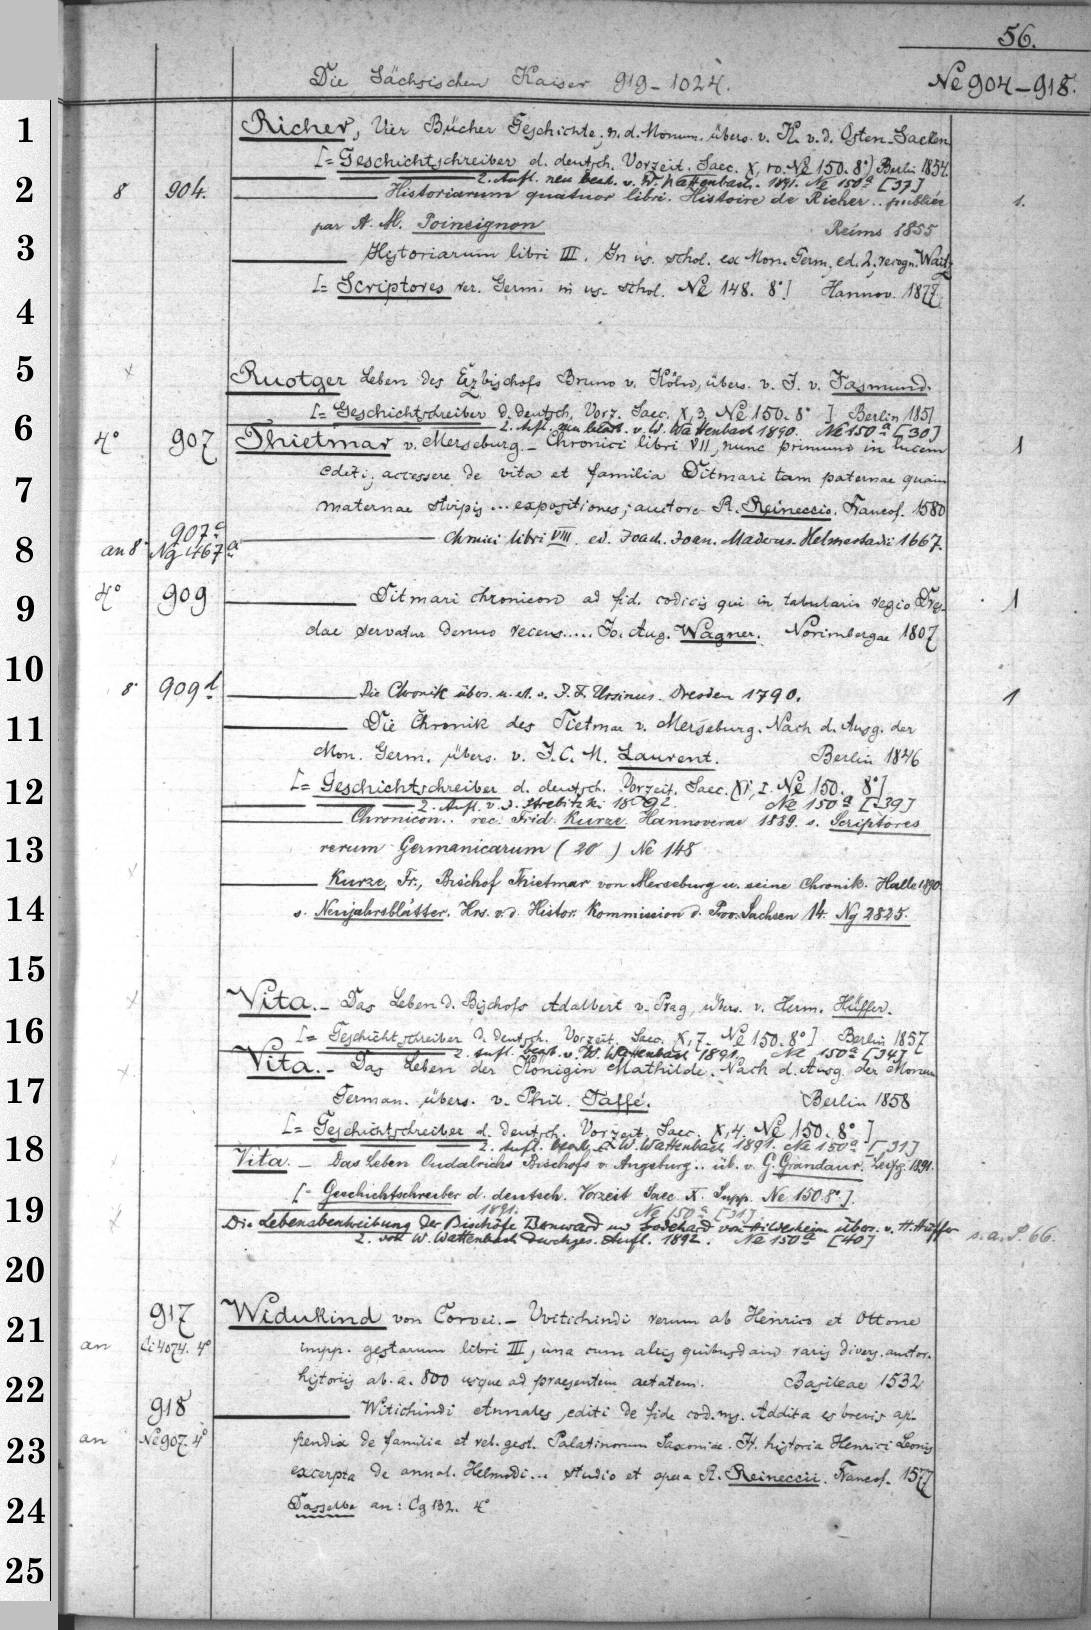 56.
Die Sächsischen Kaiser 919-1024. Ne 904-918.
1 Richer, Vier Bücher Geschichte, n. d. Monum. übers. v. K. v. d. Osten-Sacken
[= Geschichtschreiber d. deutsch. Vorzeit. Saec. X, 10. Ne 150. 8°] Berlin 1854.
2. Aufl. neu bearb. v. W. Wattenbach. 1891. Ne 150ª [37]
2 8 904. Historiarum quatuor libri. Histoire de Richer .. publiée 1.
par A. M. Poinsignon Reims 1855
3 Historiarum libri III. In us. schol. ex Mon. Germ. ed. 2, recogn. Waitz
4 [= Scriptores rer. Germ. in us. schol. Ne 148. 8°] Hannov. 1877.
5 x Ruotger Leben des Erzbischofs Bruno v. Köln, übers. v. J. v. Jasmund.
[= Geschichtschreiber d. deutsch. Vorz. Saec. X, 3. Ne 150. 8° ] Berlin 1851
6 2. Aufl. neu bearb. v. W. Wattenbach 1890. Ne 150ª [30]
4° 907 Thietmar v. Merseburg. - Chronici libri VII, nunc primum in lucem 1
7 editi, accessere de vita et familia Ditmari tam paternae quam
maternae stirpis ... expositiones, autore R. Reineccio. Francof. 1580
8 an 8° 907c Ng 467ª Chronici libri VIII. ed. Joach. Joan. Maderus. Helmestadii 1667.
9 4° 909 Ditmari chronicon ad fid. codicis qui in tabulario regio Dres- 1
dae servatur denuo recens..... Jo. Aug. Wagner. Norimbergae 1807
10 8° 909d Die Chronik übers. u. erl. v. J. F. Ursinus. Dresden 1790. 1
11 Die Chronik des Tietmar v. Merseburg. Nach d. Ausg. der
Mon. Germ. übers. v. J. C. M. Laurent. Berlin 1846
12 [= Geschichtschreiber d. deutsch. Vorzeit. Saec. XI, 1. Ne 150. 8°]
2. Aufl. v. J. Strebitzki 1892. Ne 150ª [39]
Chronicon.. rec. Frid. Kurze. Hannoverae 1889. s. Scriptores
13 rerum Germanicarum (20) Ne 148
Kurze, Fr., Bischof Thietmar von Merseburg u. seine Chronik. Halle 1890.
14 s. Neujahrsblätter. Hrs. v. d. Histor. Kommission d. Prov. Sachsen 14. Ng 2825.
15 x Vita. - Das Leben d. Bischofs Adalbert v. Prag, übers. v. Herm. Hüffer.
16 [= Geschichtschreiber d. deutsch. Vorzeit. Saec. X, 7. Ne 150. 8°] Berlin 1857
2. Aufl. bearb. v. W. Wattenbach 1891. Ne 150ª [34]
x Vita. - Das Leben der Königin Mathilde. Nach d. Ausg. der Monum.
17 German. übers. v. Phil. Jaffé. Berlin 1858
[= Geschichtschreiber d. deutsch. Vorzeit. Saec. X, 4. Ne 150. 8°]
18 2. Aufl. bearb. v. W. Wattenbach 1891. Ne 150ª [31]
Vita. - Das Leben Oudalrichs Bischofs v. Augsburg .. üb. v. G. Grandaur. Leipz. 1891.
[= Geschichtschreiber d. deutsch. Vorzeit Saec. X. Supp. Ne 150 8°.]
19 1891. Ne 150ª [31]
x Die Lebensbeschreibung der Bischöfe Bernward und Godehard von Hildesheim übers. v. H. Hüffer s. a. P. 66.
20 2. von W. Wattenbach durchges. Aufl. 1892. Ne 150ª [40]
917 Widukind von Corvei. - Vvitichindi rerum ab Henrico et Ottone
21 an Ci 4074. 4° impp. gestarum libri III, una cum aliis quibusdam raris divers. auctor.
22 historiis ab. a. 800 usque ad praesentem aetatem. Basileae 1532
918 Witichindi Annales, editi de fide cod. ms. Addita es brevis ap-
23 an Ne 907. 4° pendix de familia et reb. gest. Palatinorum Saxoniae. It. historia Henrici Leonis
excerpta de annal. Helmodi... studio et opera R. Reineccii. Francof. 1577
24 Dasselbe an: Cg 132. 4°
25